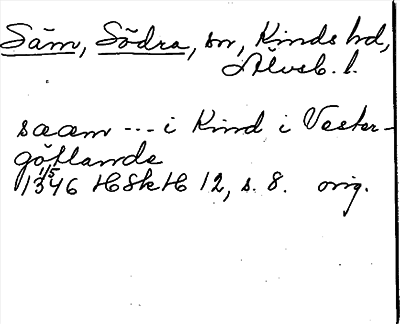 Säm, Södra, sn, Kinds hd,
Älvsb. l.
saam --- i Kind i Vester-
götlande
1/5
1346 HSkH 12, s. 8. orig.